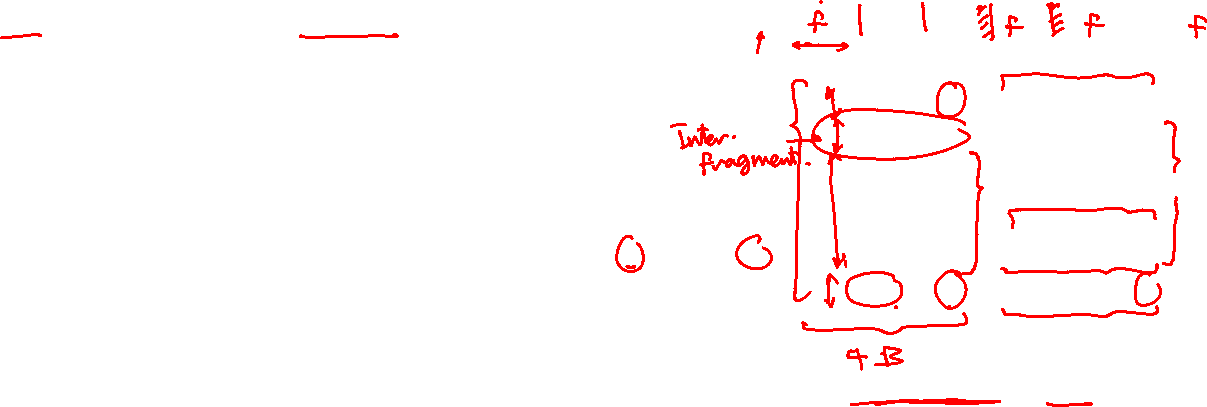 f f f f
Inter.
fragment.
4B